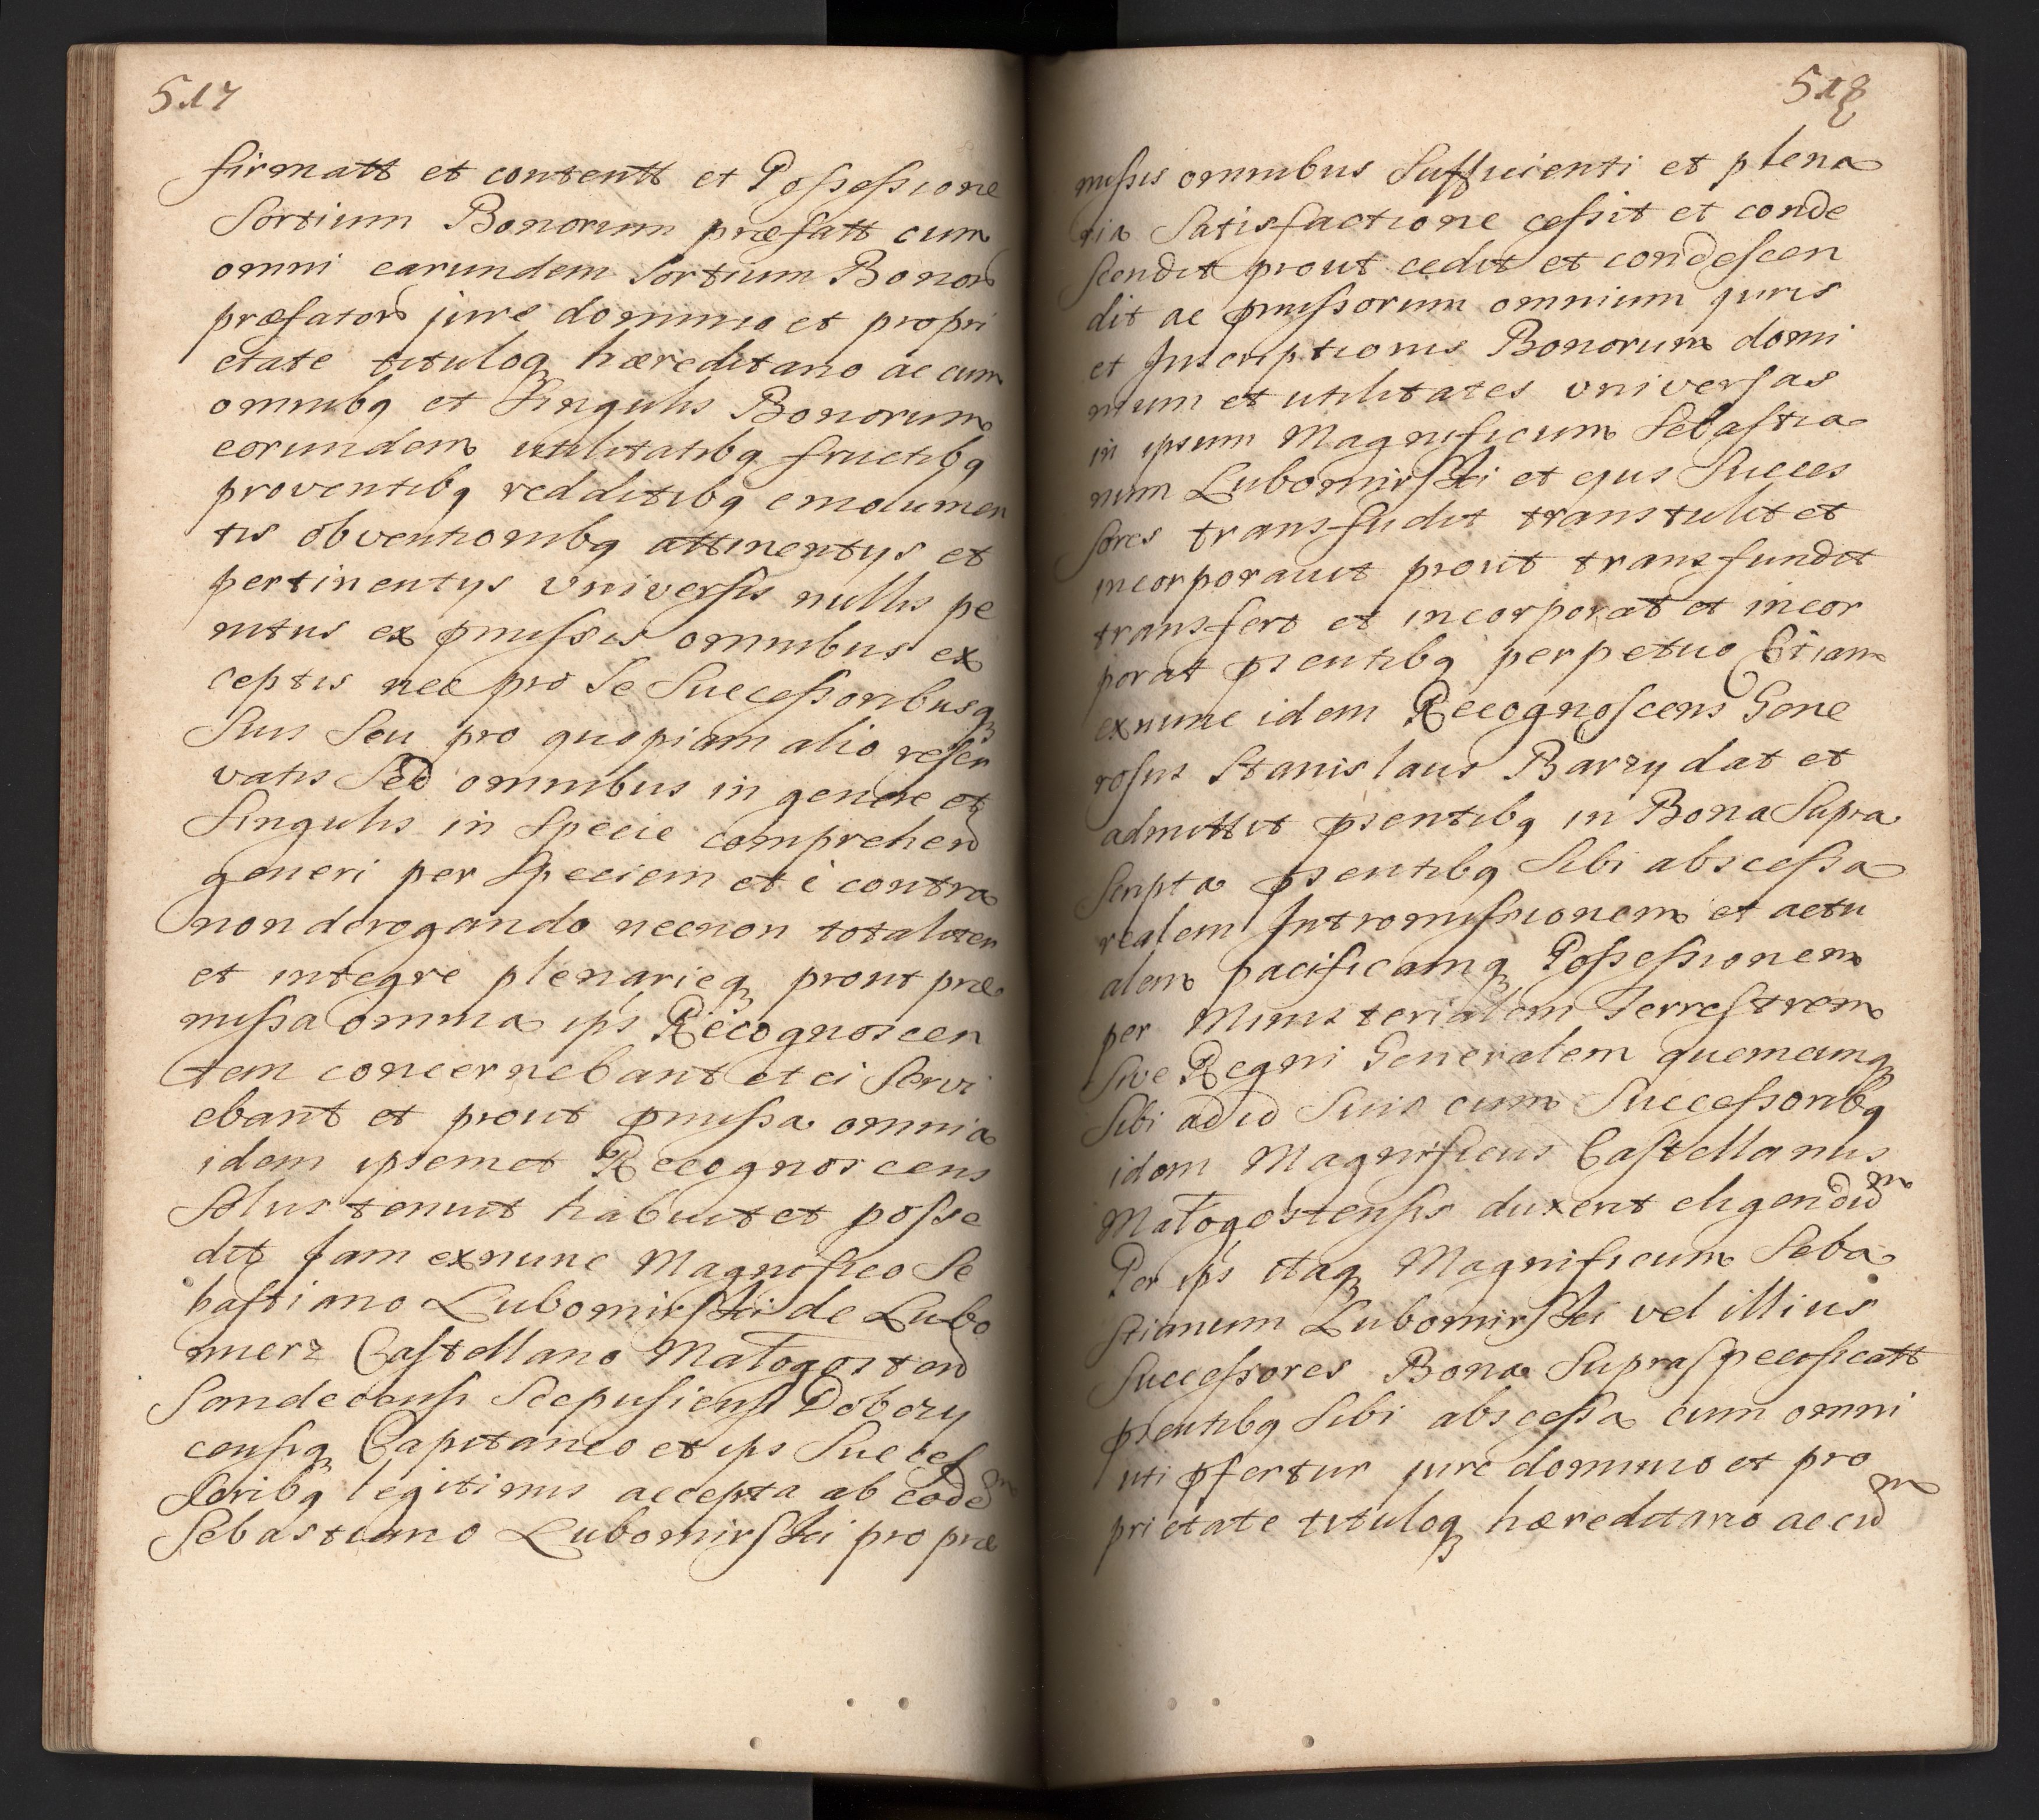 517
firmatt et contentt et Possessione
Sortium Bonorum præfatt cum
omni earundem Sortium Bonor
præfator jure dominio et propri
etate tituloq hæreditario ac cum
omnibq et Singulis Bonorum
eorundem utilitatibq fructibq
proventibq redditibq emolumen
tis obventionibq attinentys et
pertinentys universis nullis pe
nitus ex pmissis omnibus ex
ceptis nec pro Se Successoribusq
Suis Seu pro quopiam alio reser
vatis Sed omnibus in genere et
Singulis in Specie comprehen
generi per Speciem et è contra
non derogando necnon totaliter
et integre plenarieq prout præ
missa omnia ips Recognoscen
tem concernebant et ei Servi
ebant et prout pmissa omnia
idem ipsemet Recognoscens
Solus tenuit habuit et posse
dit Jam exnunc Magnifico Se
bastiano Lubomirski de Lubo
mierz Castellano Małogosten
Sandecensi Scepusiensi Dobczy
censiq Capitaneo et ips Succes
Soribq legitimis accepta ab eodem
Sebastiano Lubomirski pro præ
518
missis omnibus Sufficienti et plena
ria Satisfactione cessit et conde
Scendit prout cedit et condescen
dit ac pmissorum omnium juris
et Inscriptionis Bonorum domi
nium et utilitates universas
in ipsum Magnificum Sebastia
num Lubomirski et ejus Succes
sores transfudit transtulit et
incorporauit prout transfundit
transfert et incorporat et incor
porat psentibq perpetuo Etiam
exnunc idem Recognoscens Gene
rosus Stanislaus Barzy dat et
admittit psentibq in Bona Supra
Scripta psentibq Sibi abscessa
realem Intromissionem et actu
alem pacificamq Possessionem
per Ministerialem Terrestrem
Sive Regni Generalem quemcunq
Sibi ad id Suis cum Successoribq
idem Magnificus Castellanus
Małogostensis duxerit eligendum
Per ips itaq Magnificum Seba
stianum Lubomirski vel illius
Successores Bona Supraspecificatt
psentibq Sibi abscessa cum omni
uti pfertur jure dominio et pro
prietate tituloq hæreditario ac cum